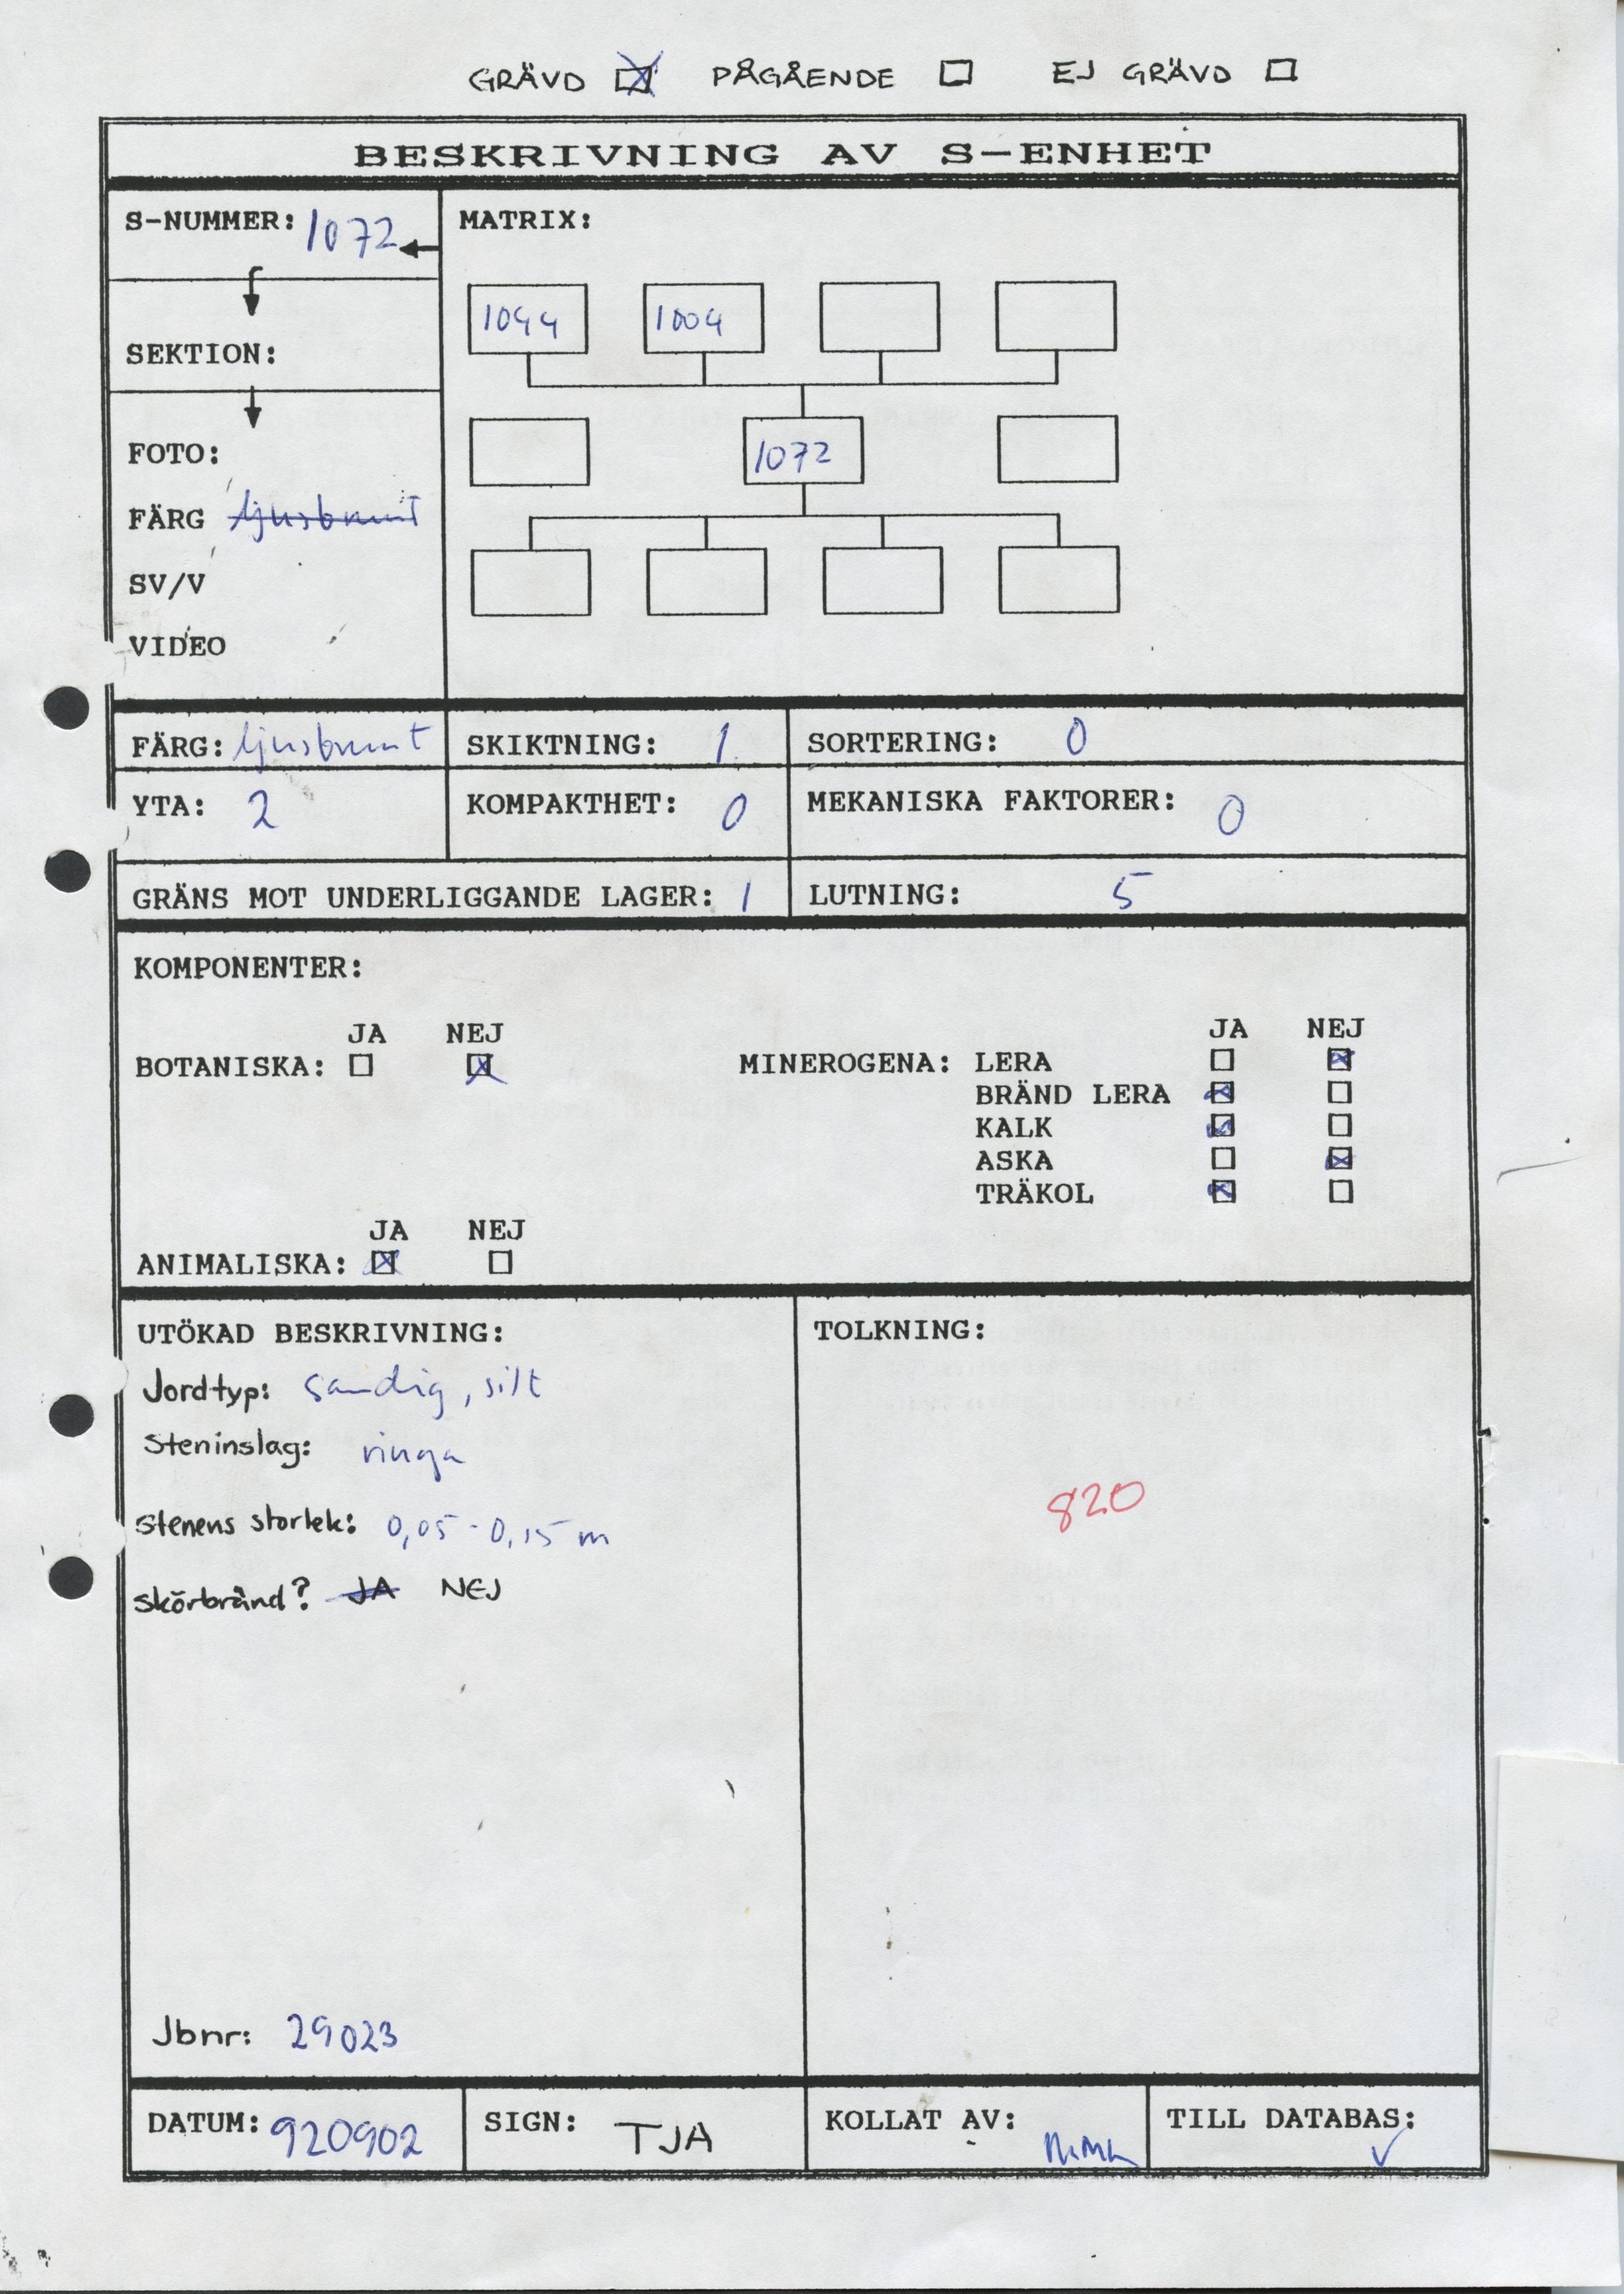 GRÄVD ☒ PÅGÅENDE ☐ EJ GRÄVD ☐
BESKRIVNING AV S-ENHET
S-NUMMER: 1072
SEKTION:
FOTO:
FÄRG ljusbrunt
SV/V
VIDEO
MATRIX:
1044 1004
1072
FÄRG: ljusbrunt SKIKTNING: 1 SORTERING: 0
YTA: 2 KOMPAKTHET: 0 MEKANISKA FAKTORER: 0
GRÄNS MOT UNDERLIGGANDE LAGER: 1 LUTNING: 5
KOMPONENTER:
JA NEJ
BOTANISKA: ☐ ☒
JA NEJ
MINEROGENA: LERA ☐ ☒
BRÄND LERA ☒ ☐
KALK ☒ ☐
ASKA ☐ ☒
TRÄKOL ☒ ☐
JA NEJ
ANIMALISKA: ☒ ☐
UTÖKAD BESKRIVNING:
Jordtyp: sandig, silt
Steninslag: ringa
Stenens storlek: 0,05-0,15 m
skörbränd? JA NEJ
Jbnr: 29023
TOLKNING:
820
DATUM: 920902 SIGN: TJA KOLLAT AV: TILL DATABAS: ✓